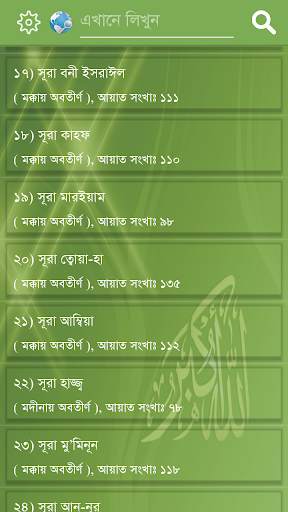 এখানে লিখুন
১৭) সূরা বনী ইসরাঈল
( মক্কায় অবতীর্ণ ), আয়াত সংখাঃ ১১১
১৮) সূরা কাহফ
( মক্কায় অবতীর্ণ ), আয়াত সংখাঃ ১১০
১৯) সূরা মারইয়াম
( মক্কায় অবতীর্ণ ), আয়াত সংখাঃ ৯৮
২০) সূরা ত্বোয়া-হা
( মক্কায় অবতীর্ণ ), আয়াত সংখাঃ ১৩৫
২১) সূরা আম্বিয়া
( মক্কায় অবতীর্ণ ), আয়াত সংখাঃ ১১২
২২) সূরা হাজ্জ্ব
( মদীনায় অবতীর্ণ ), আয়াত সংখাঃ ৭৮
২৩) সূরা মু'মিনূন
( মক্কায় অবতীর্ণ ), আয়াত সংখাঃ ১১৮
২৪) সূরা আন-নূর
الله أكبر